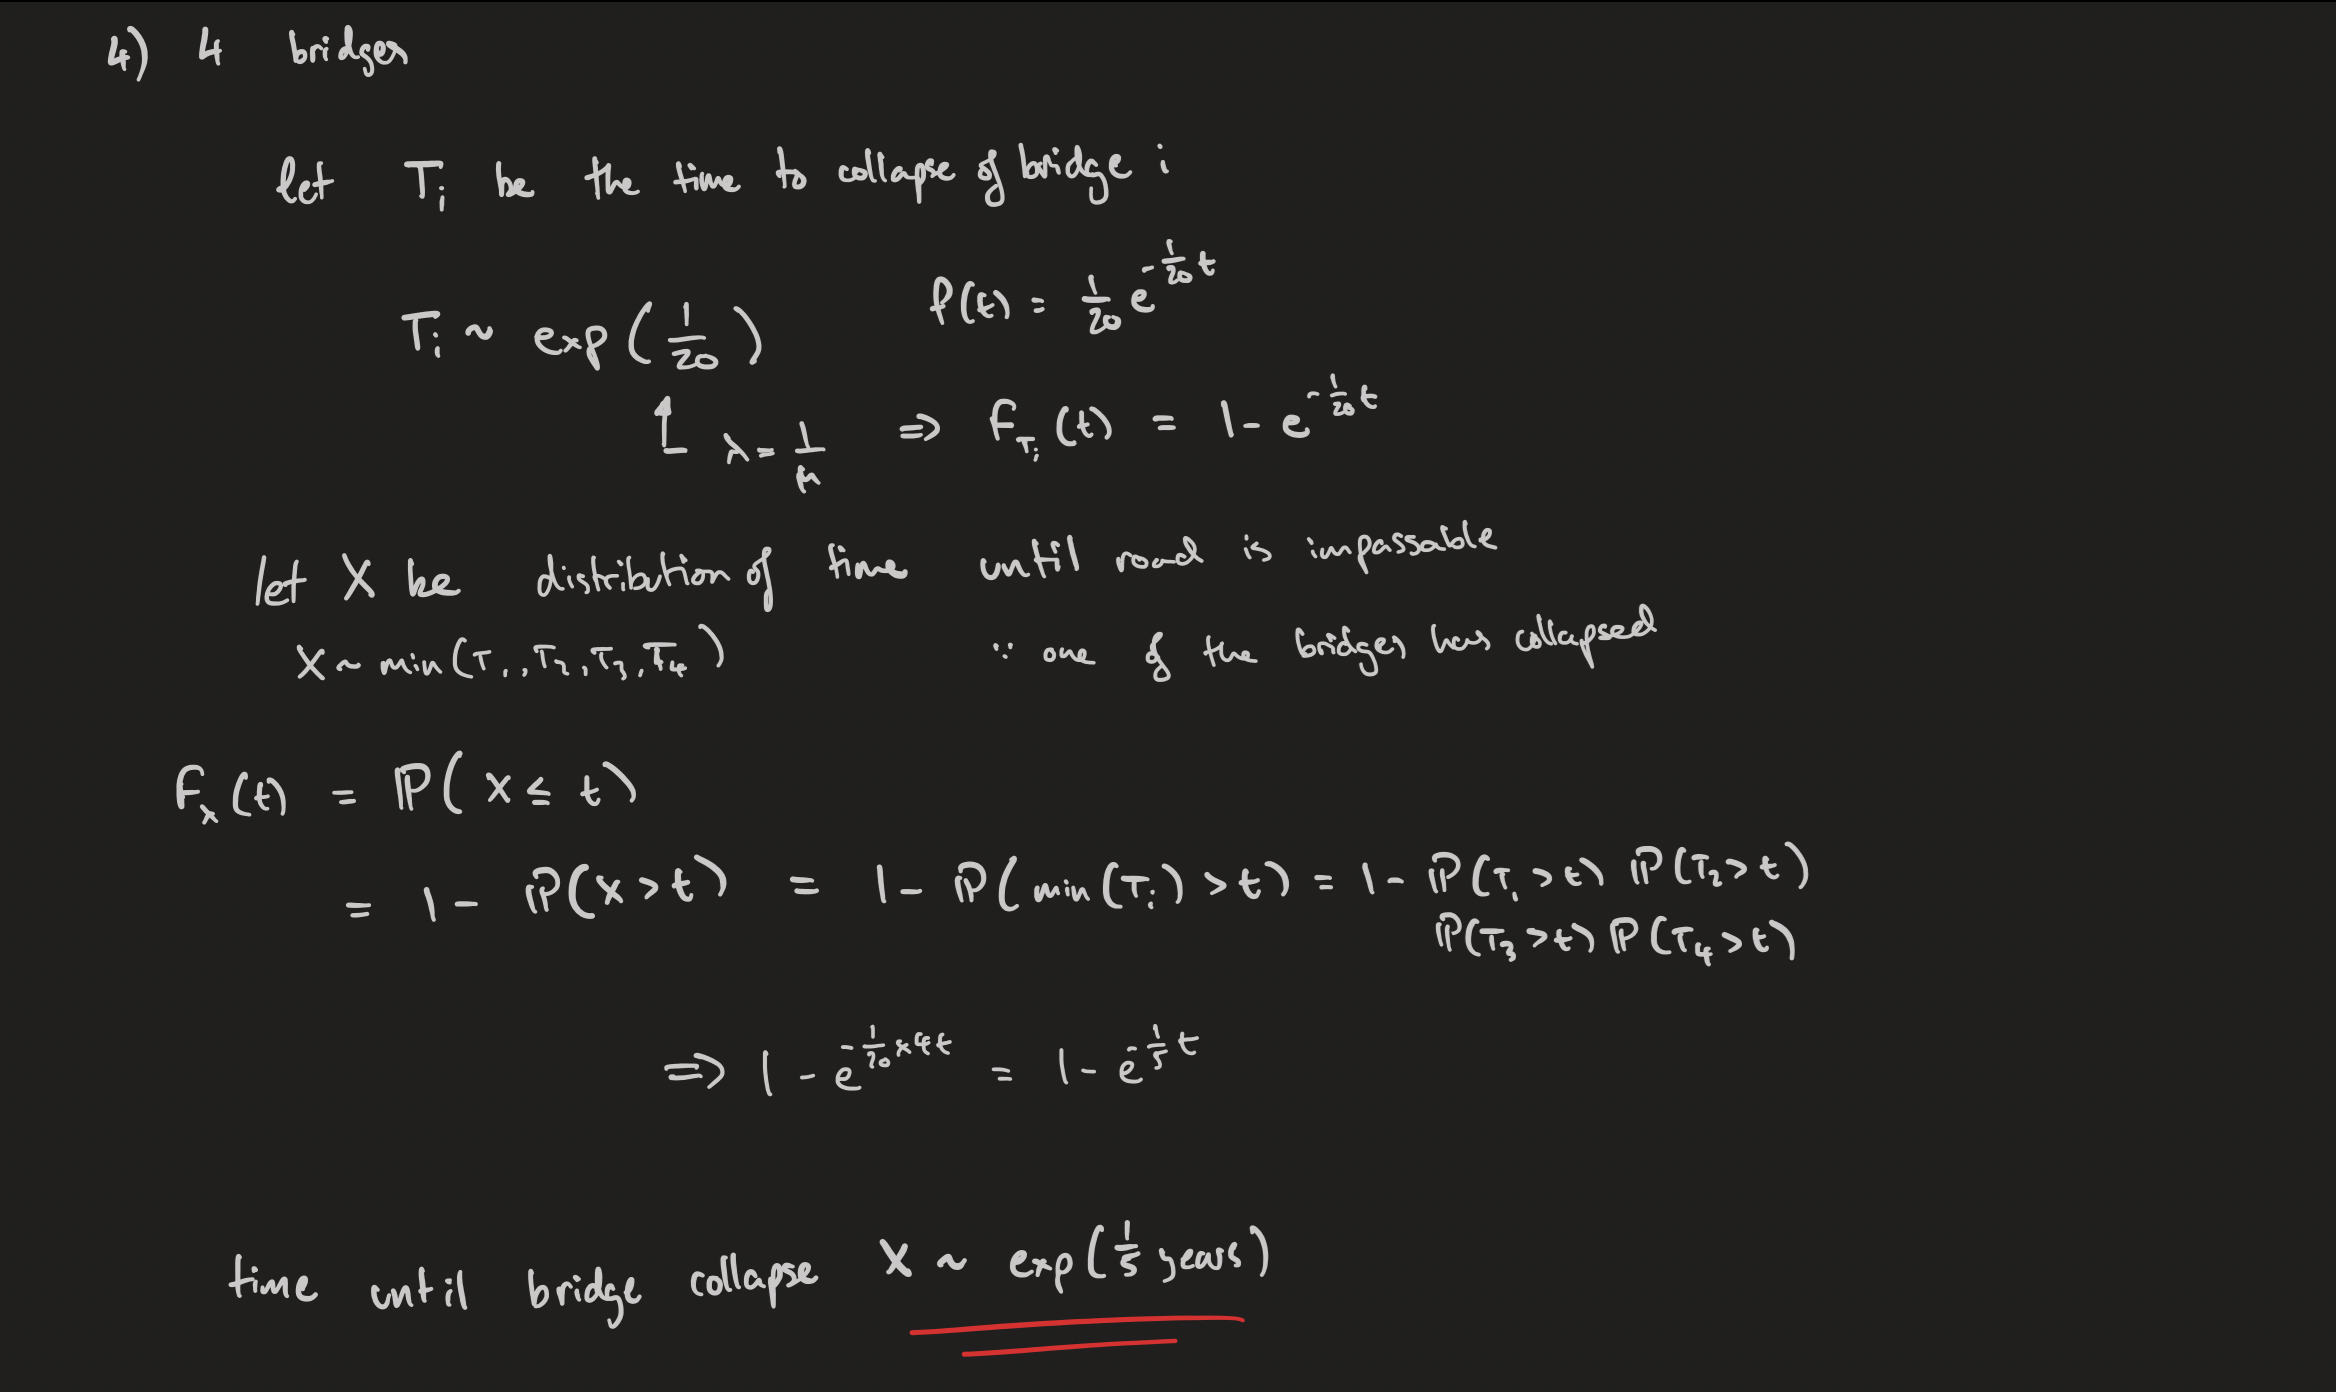 4) 4 bridges
let Tᵢ be the time to collapse of bridge i
Tᵢ ~ exp(1/20) f(t) = 1/20 e^(-1/20 t)
↑ λ = 1/μ ⇒ F_Tᵢ(t) = 1 - e^(-1/20 t)
let X be distribution of time until road is impassable
X ~ min(T₁, T₂, T₃, T₄) ∵ one of the bridges has collapsed
F_X(t) = ℙ(X ≤ t)
= 1 - ℙ(X > t) = 1 - ℙ(min(Tᵢ) > t) = 1 - ℙ(T₁ > t) ℙ(T₂ > t)
ℙ(T₃ > t) ℙ(T₄ > t)
⇒ 1 - e^(-1/20 × 4t) = 1 - e^(-1/5 t)
time until bridge collapse X ~ exp(1/5 years)